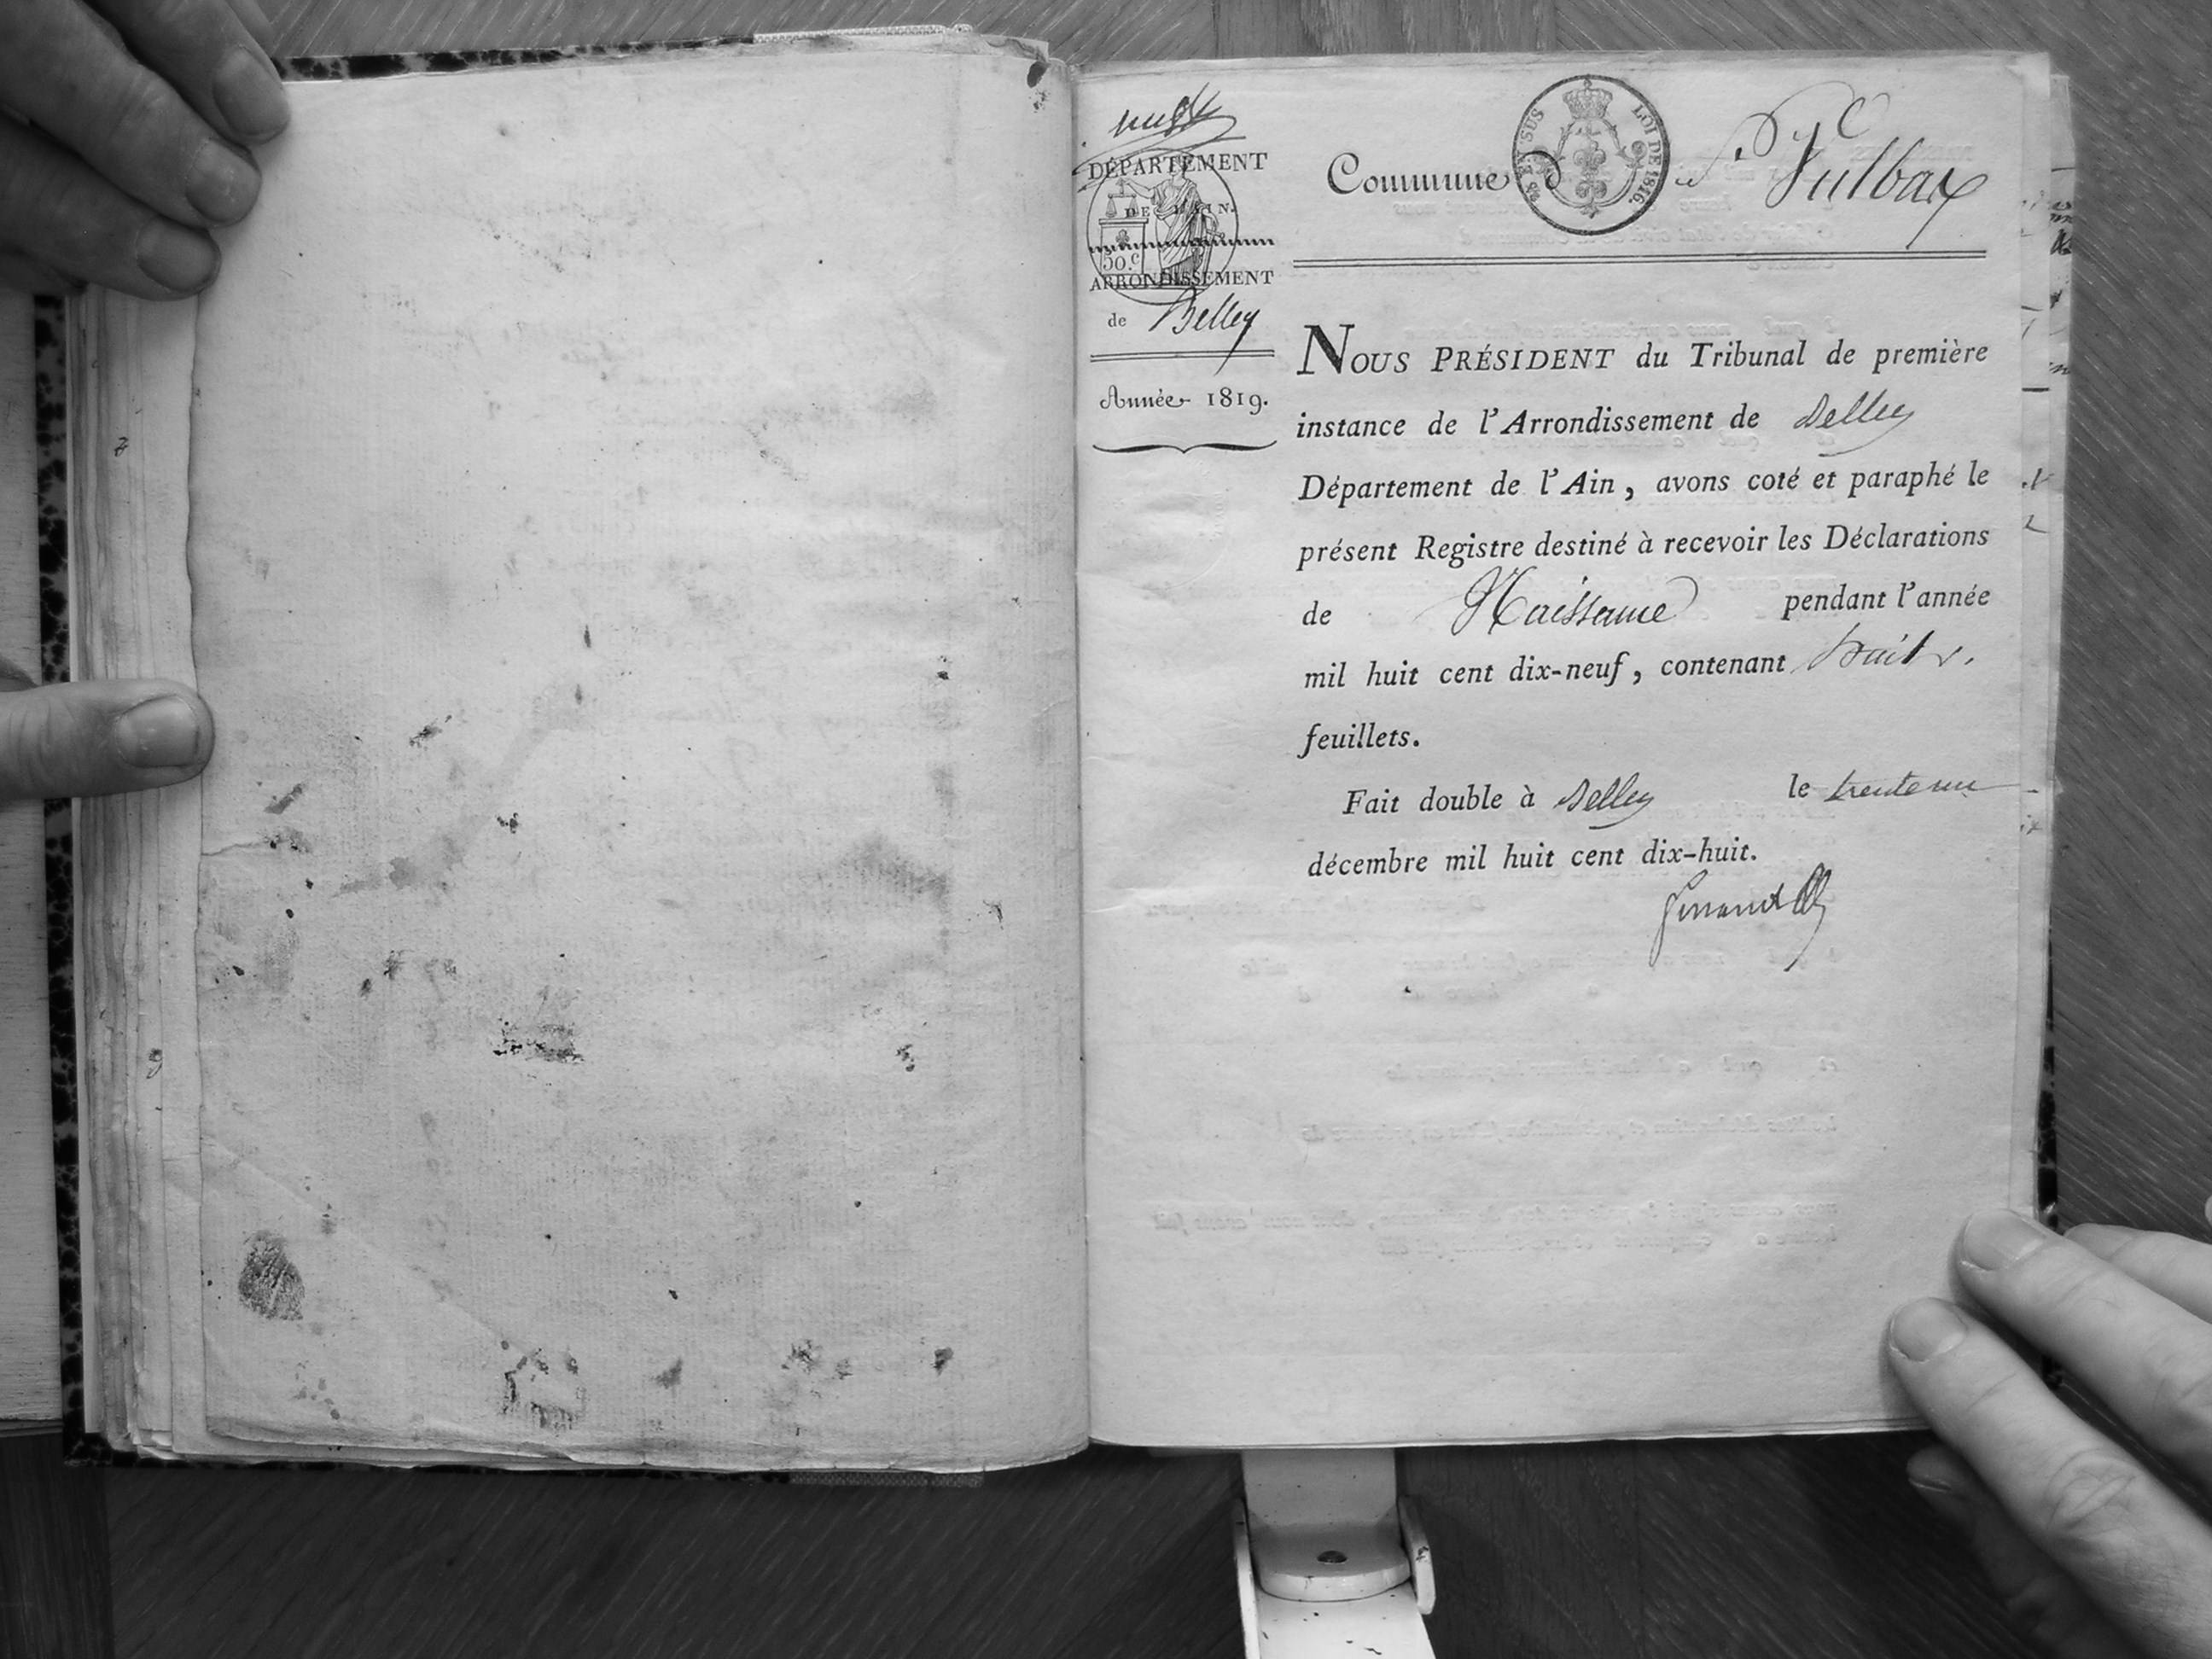 DÉPARTEMENT
DE L'AIN.
50.c
ARRONDISSEMENT
de Belley
Année 1819.
Commune d
EN SUS
LOI DE 1816.
St Vulbax
NOUS PRÉSIDENT du Tribunal de première
instance de l'Arrondissement de Belley
Département de l'Ain, avons coté et paraphé le
présent Registre destiné à recevoir les Déclarations
de Naissance pendant l'année
mil huit cent dix-neuf, contenant huit
feuillets.
Fait double à Belley le trente un
décembre mil huit cent dix-huit.